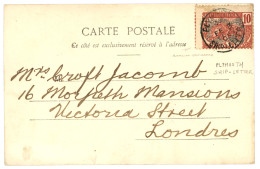 CARTE POSTALE
Ce côté est exclusivement réservé à l'adresse
10
Mrs Croft Jacomb
16 Morpeth Mansions
Victoria Street
Londres
PLYMOUTH
SHIP-LETTER